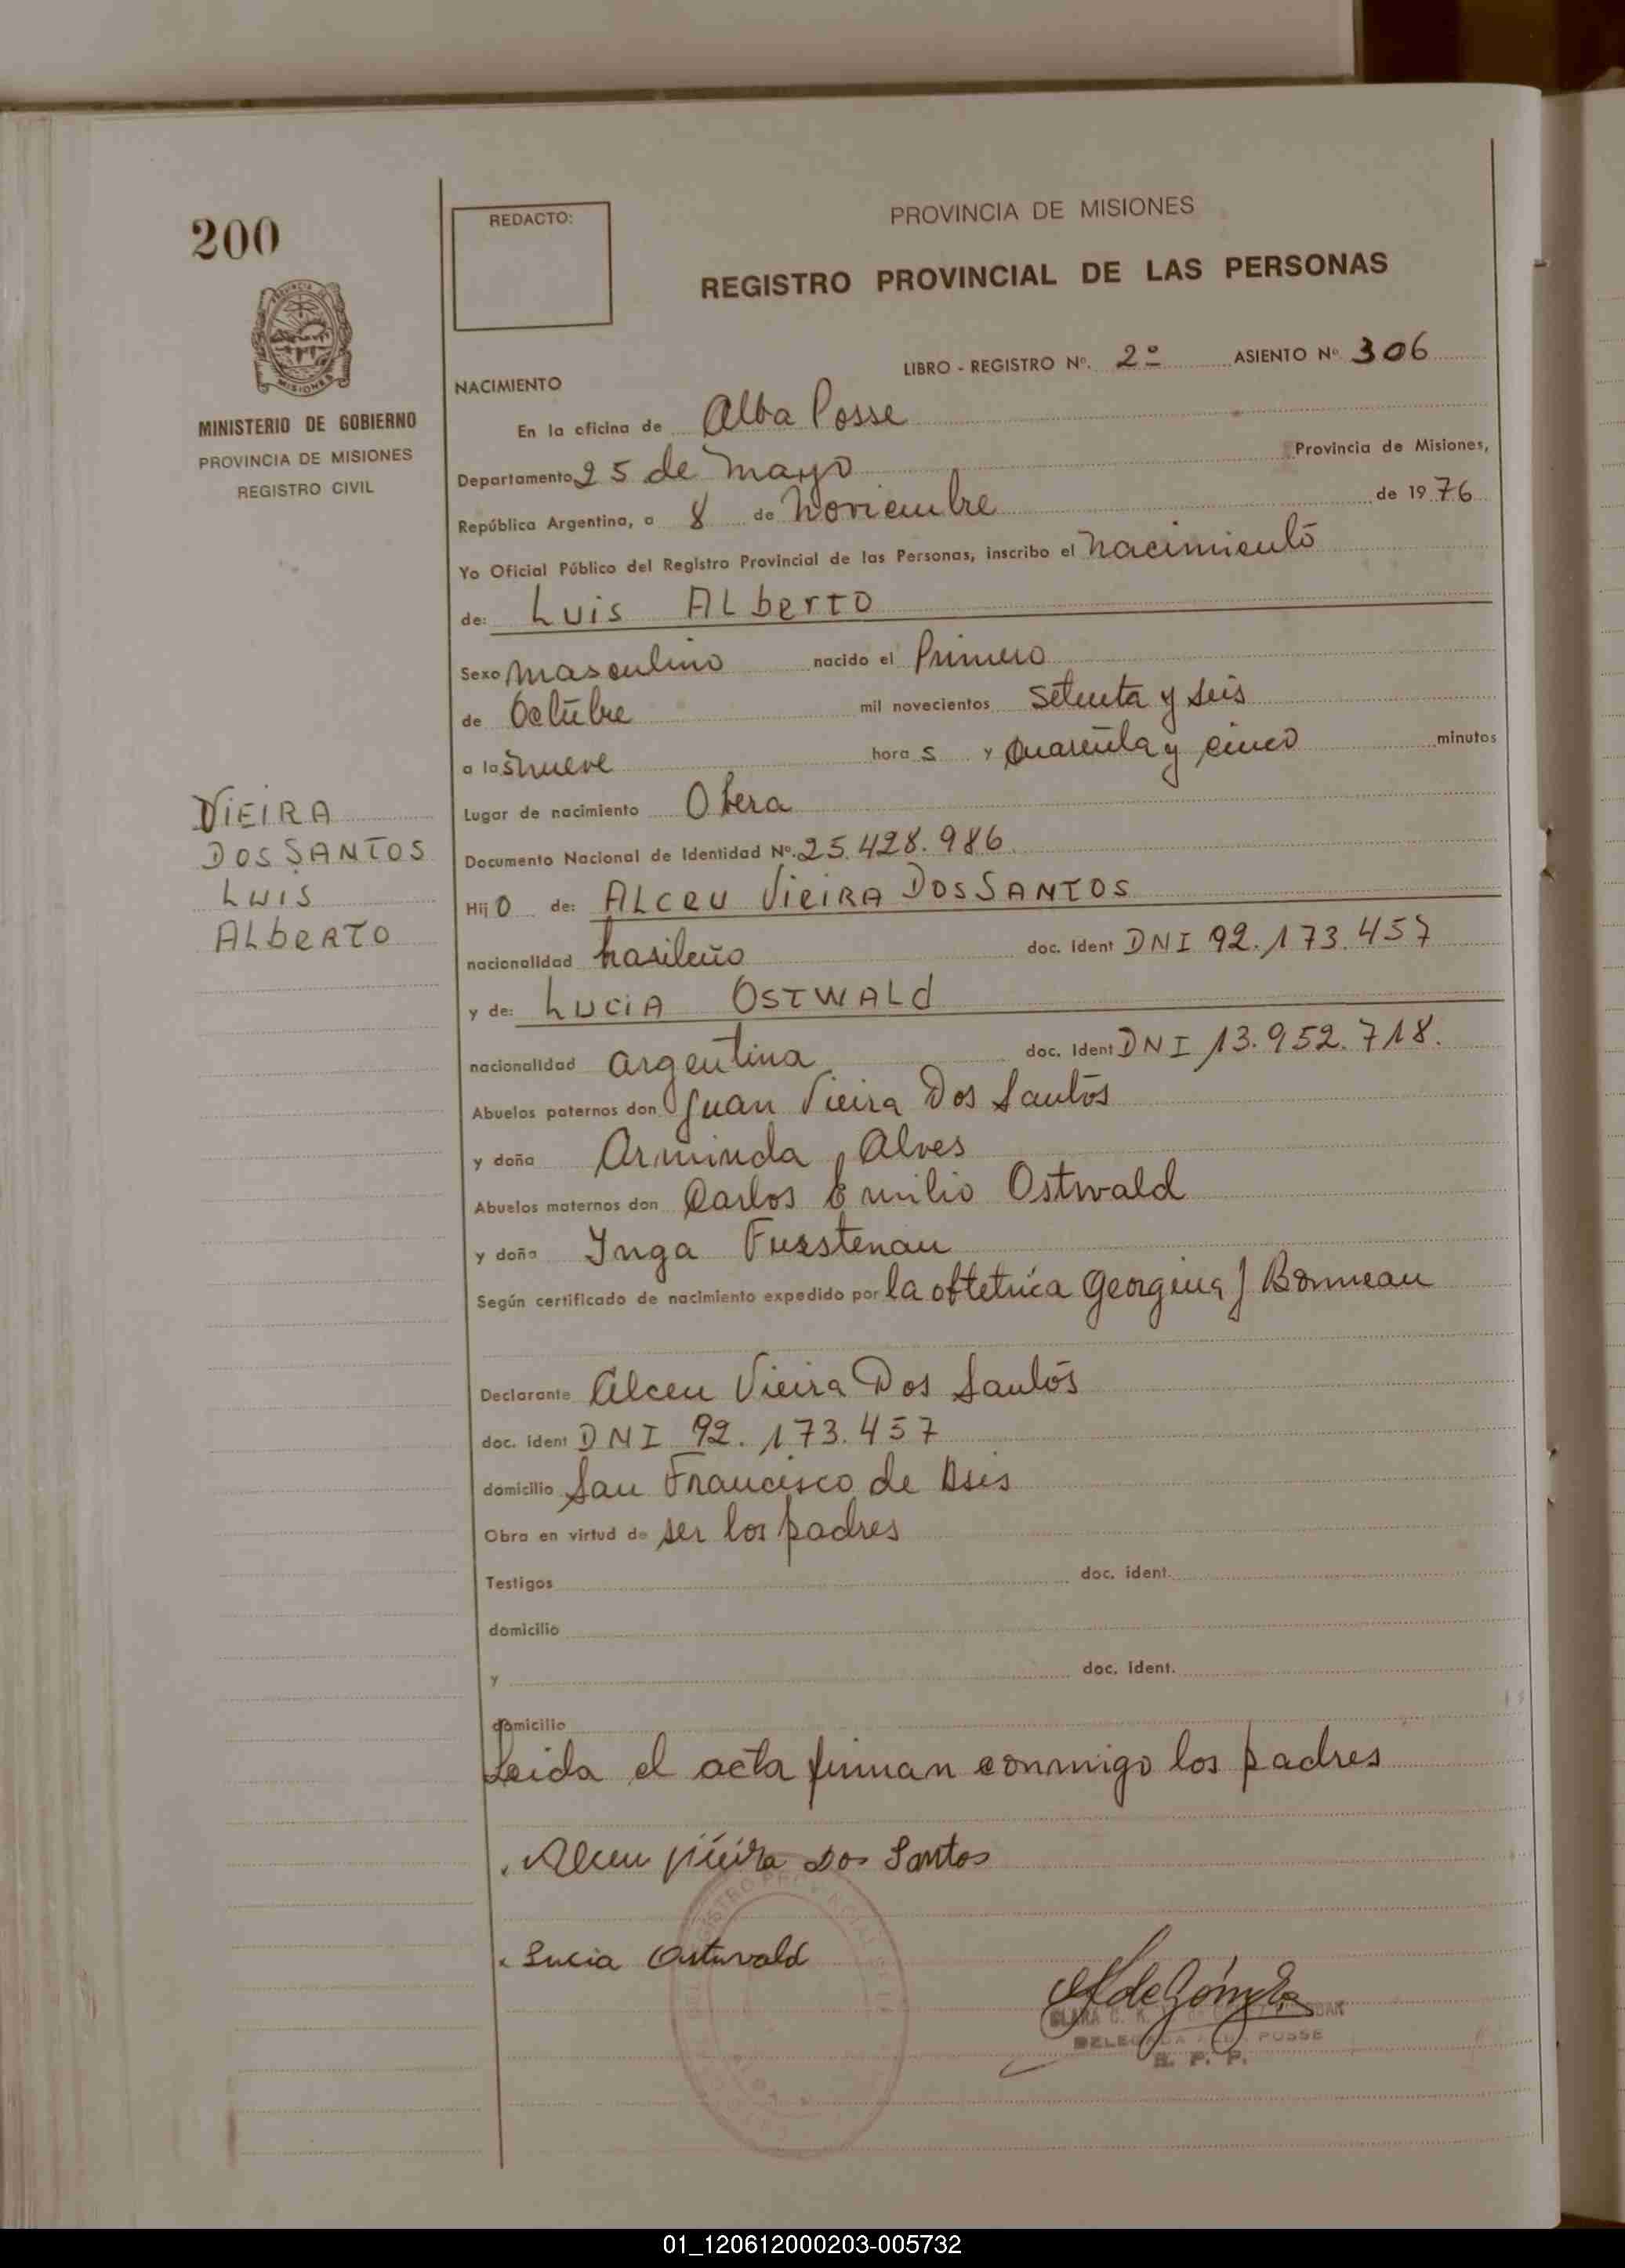 200
REDACTO:
PROVINCIA DE MISIONES
REGISTRO PROVINCIAL DE LAS PERSONAS
MISIONES
MINISTERIO DE GOBIERNO
PROVINCIA DE MISIONES
REGISTRO CIVIL
LIBRO - REGISTRO Nº. 2º ASIENTO Nº 306
NACIMIENTO
En la oficina de Alba Posse
Departamento 25 de Mayo Provincia de Misiones,
República Argentina, a 8 de Noviembre de 1976
Yo Oficial Público del Registro Provincial de las Personas, inscribo el Nacimiento
de: Luis ALberto
Sexo masculino nacido el Primero
de Octubre mil novecientos setenta y seis
a las nueve horas y cuarenta y cinco minutos
Lugar de nacimiento Obera
Documento Nacional de Identidad Nº. 25.428.986
Hijo de: ALCEU VIEIRA DOS SANTOS
nacionalidad brasileño doc. ident DNI 92.173.457
y de: LUCIA OSTWALd
nacionalidad argentina doc. ident DNI 13.952.718.
Abuelos paternos don Juan Vieira Dos Santos
y doña Arminda Alves
Abuelos maternos don Carlos Emilio Ostwald
y doña Inga
Según certificado de nacimiento expedido por la obtetrica Georgina J Bonneau
Declarante Alceu Vieira Dos Santos
doc. ident DNI 92.173.457
domicilio San Francisco de Asis
Obra en virtud de ser los padres
Testigos doc. ident.
domicilio
y doc. ident.
domicilio
Leida el acta firman conmigo los padres
Alceu Vieira Dos Santos
Lucia Ostwald
VIEIRA
DOS SANTOS
LUIS
ALbERTO
CLARA C. K.
DELEGADA ALBA POSSE
R. P. P.
01_120612000203-005732